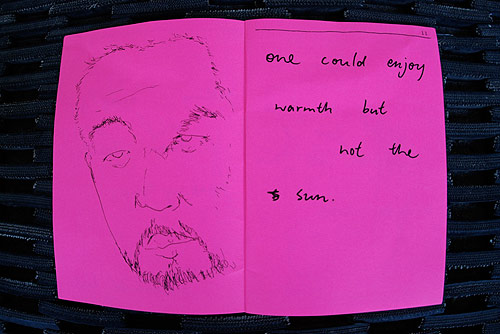 11
one could enjoy
warmth but
not the
sun.